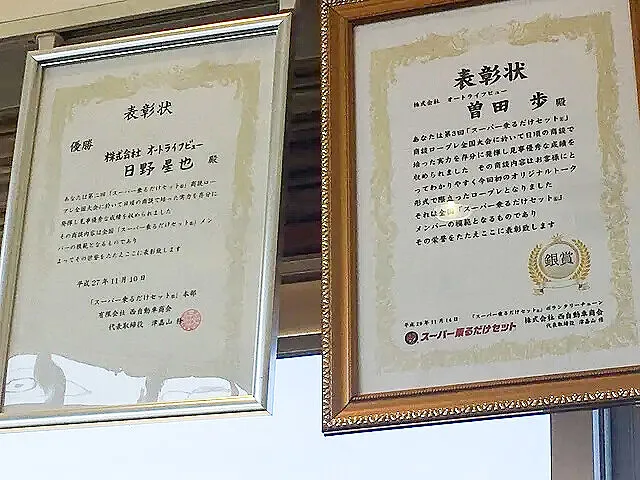 表彰状
優勝
株式会社 オートライフビュー
日野 星也 殿
あなたは第二回『スーパー乗るだけセット®』商談ロー
プレ全国大会に於いて日頃の商談で培った実力を存分に
発揮し見事優秀な成績を収められました
その商談内容は全国『スーパー乗るだけセット®』メン
バーの模範となるものであり
よってその栄誉をたたえここに表彰致します
平成27年11月10日
『スーパー乗るだけセット®』本部
有限会社 西自動車商会
代表取締役 津嘉山 修
表彰状
株式会社 オートライフビュー
曽田 歩 殿
あなたは第3回『スーパー乗るだけセット®』
商談ロープレ全国大会に於いて日頃の商談で
培った実力を存分に発揮し見事優秀な成績を
収められました その商談内容はお客様にと
ってわかりやすく今回初のオリジナルトーク
形式で際立ったロープレとなりました
それは全国『スーパー乗るだけセット®』
メンバーの模範となるものであり
その栄誉をたたえここに表彰致します
銀賞
平成28年11月16日
『スーパー乗るだけセット®』ボランタリーチェーン
株式会社 西自動車商会
代表取締役 津嘉山 修
スーパー乗るだけセット